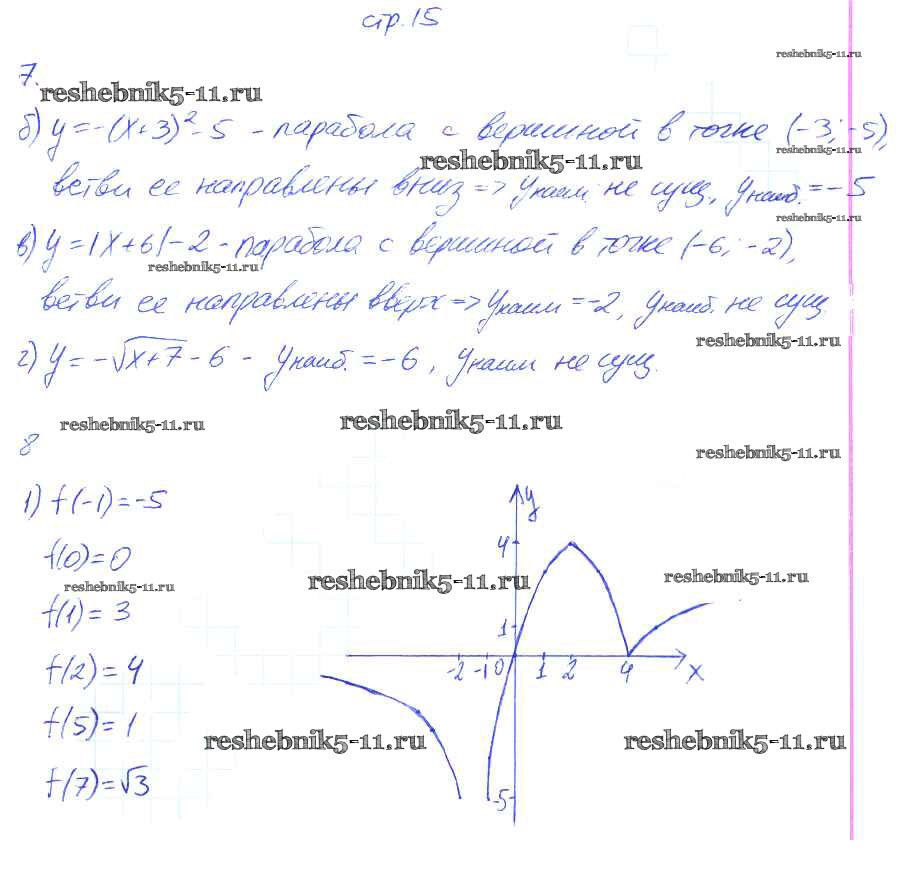 стр. 15
reshebnik5-11.ru
7.
reshebnik5-11.ru
б) y = -(x+3)² - 5 - парабола с вершиной в точке (-3; -5),
reshebnik5-11.ru
reshebnik5-11.ru
ветви ее направлены вниз => yнаим. не сущ., yнаиб. = -5
reshebnik5-11.ru
в) y = |x+6| - 2 - парабола с вершиной в точке (-6; -2),
reshebnik5-11.ru
ветви ее направлены вверх => yнаим = -2, yнаиб. не сущ.
reshebnik5-11.ru
г) y = -√(x+7) - 6 - yнаиб. = -6, yнаим не сущ.
reshebnik5-11.ru
reshebnik5-11.ru
8
reshebnik5-11.ru
1) f(-1) = -5
y
f(0) = 0
4
reshebnik5-11.ru
reshebnik5-11.ru
reshebnik5-11.ru
f(1) = 3
1
f(2) = 4
-2 -1 0 1 2 4 x
f(5) = 1
reshebnik5-11.ru
reshebnik5-11.ru
f(7) = √3
-5